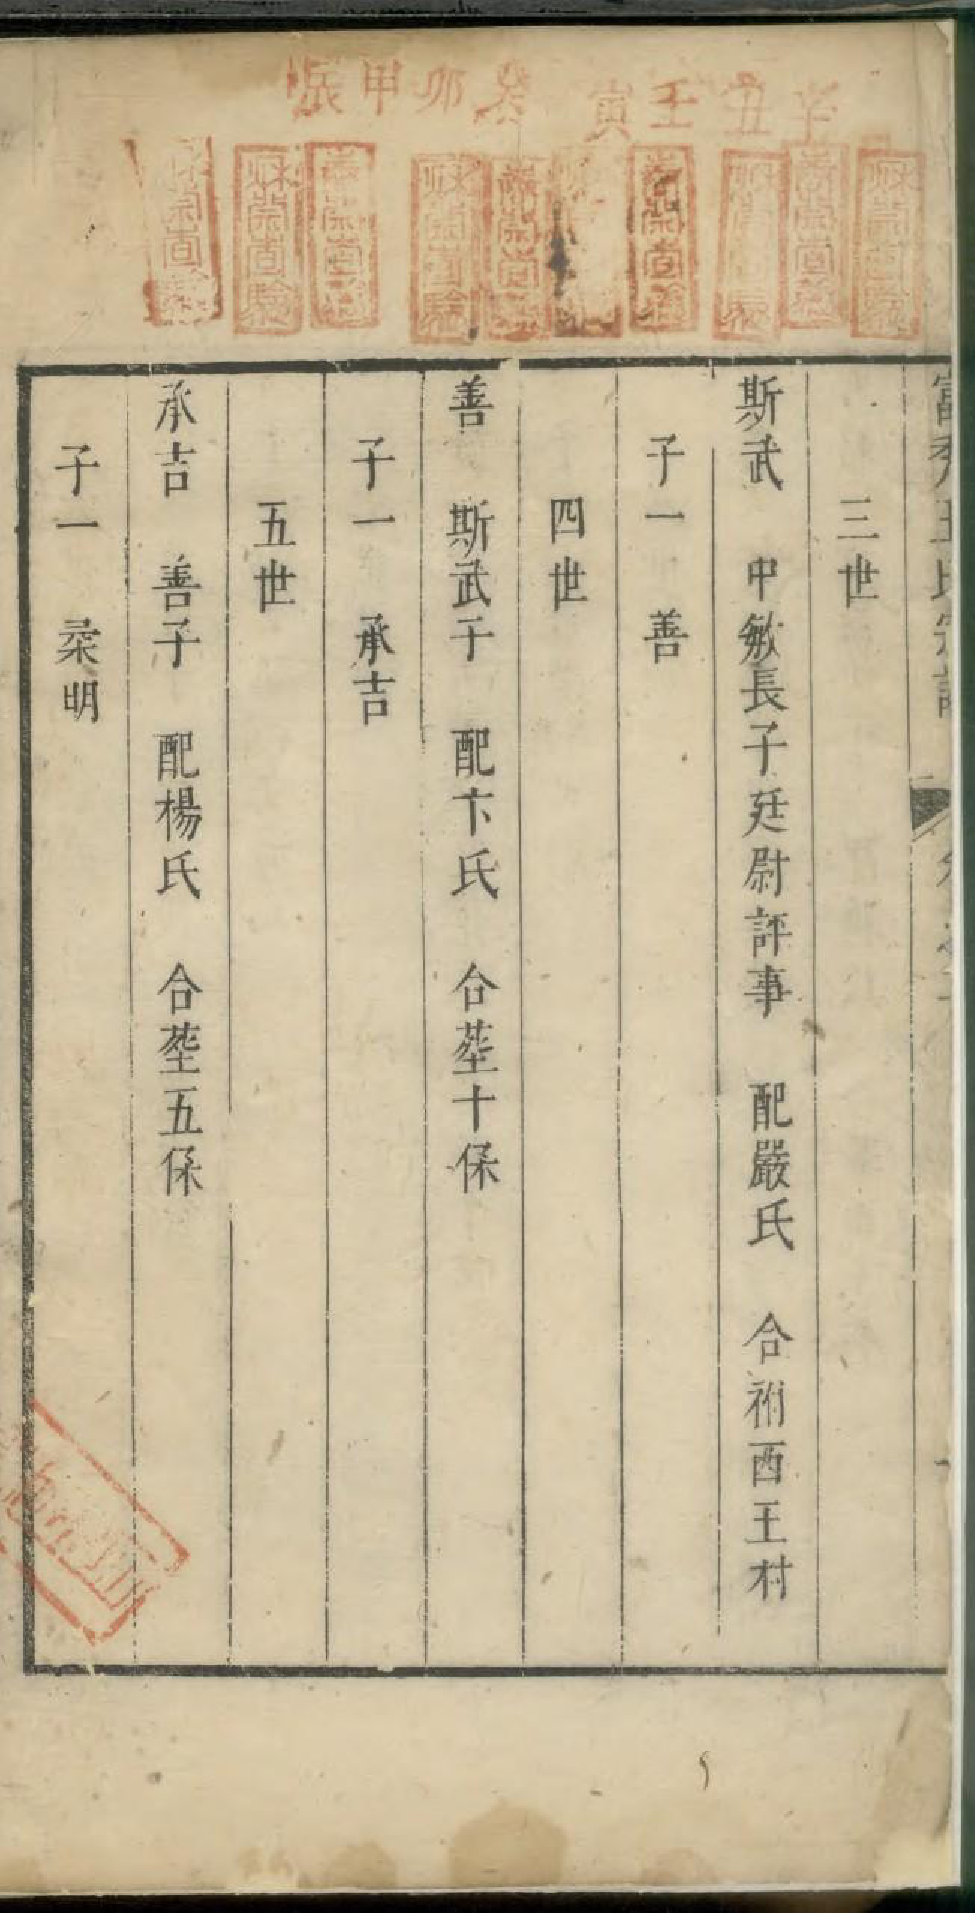 辛丑壬寅 癸卯甲辰
三世
斯武 中敏長子廷尉評事 配嚴氏 合祔西王村
子一 善
四世
善 斯武子 配卞氏 合塟十保
子一 承吉
五世
承吉 善子 配楊氏 合塟五保
子一 桒明